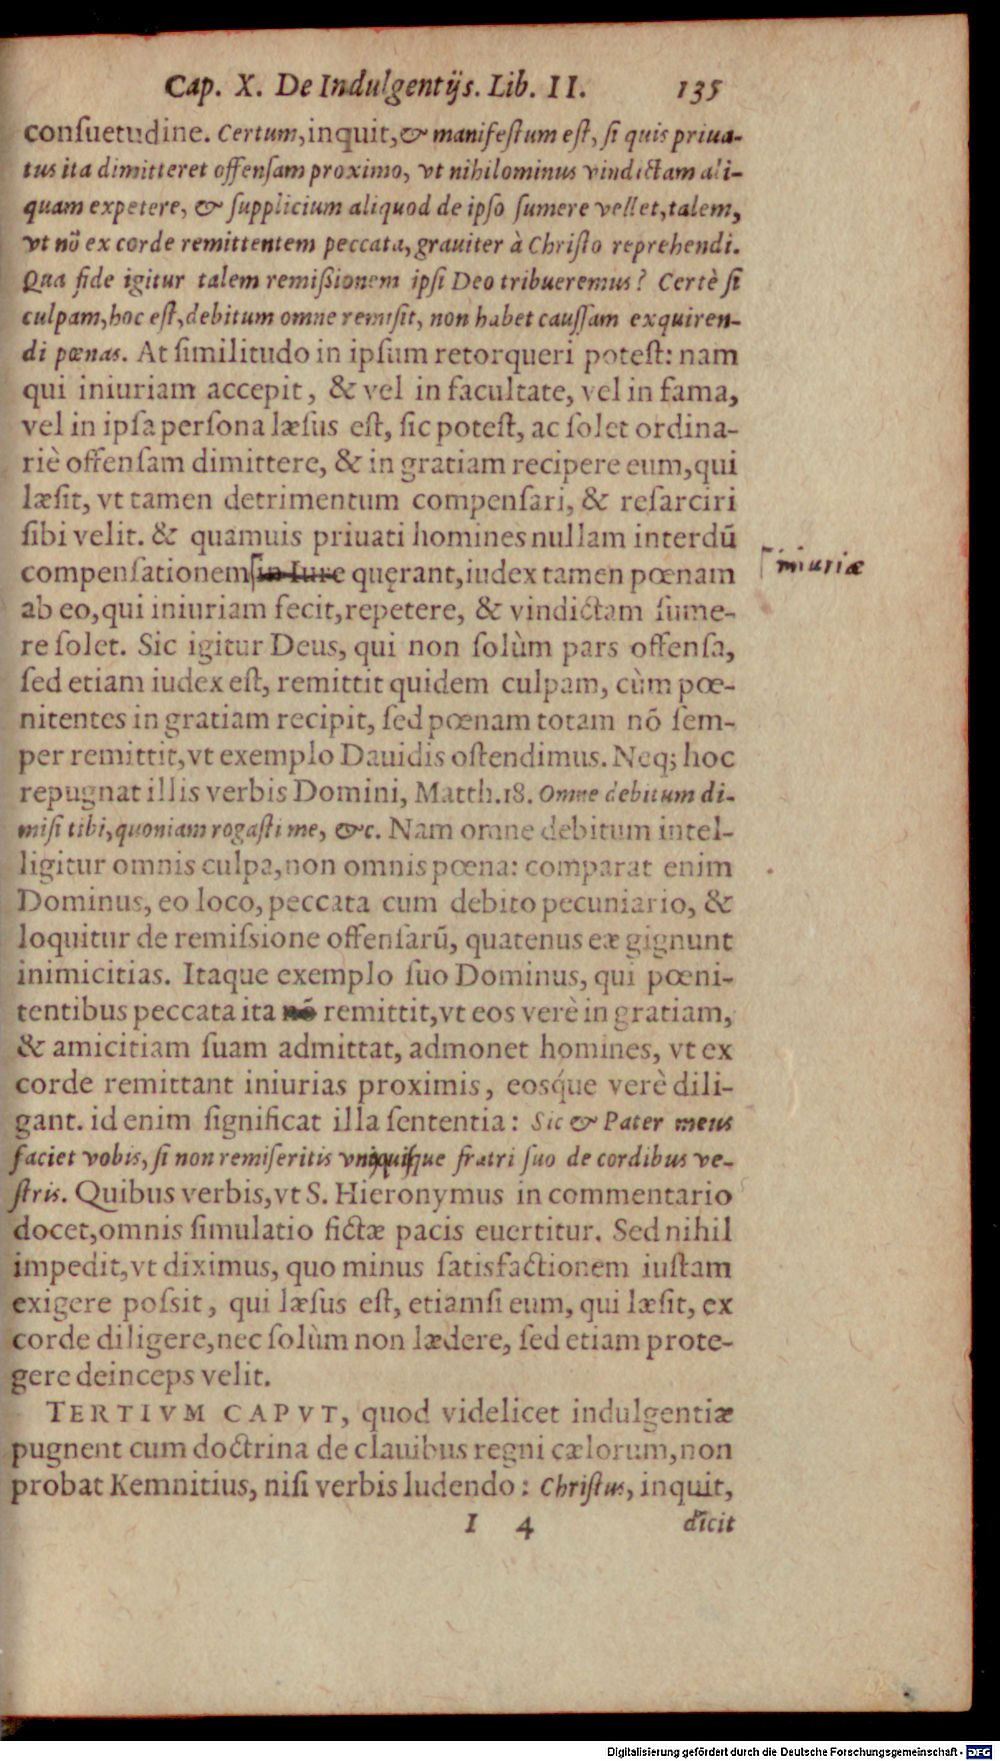 Cap. X. De Indulgentijs. Lib. II. 135
conſuetudine. Certum, inquit, & manifeſtum eſt, ſi quis priua-
tus ita dimitteret offenſam proximo, vt nihilominus vindictam ali-
quam expetere, & ſupplicium aliquod de ipſo ſumere vellet, talem,
vt nõ ex corde remittentem peccata, grauiter à Chriſto reprehendi.
Qua fide igitur talem remiſsionem ipſi Deo tribueremus? Certè ſi
culpam, hoc eſt, debitum omne remiſit, non habet cauſſam exquiren-
di pœnas. At ſimilitudo in ipſum retorqueri poteſt: nam
qui iniuriam accepit, & vel in facultate, vel in fama,
vel in ipſa perſona læſus eſt, ſic poteſt, ac ſolet ordina-
riè offenſam dimittere, & in gratiam recipere eum, qui
læſit, vt tamen detrimentum compenſari, & reſarciri
ſibi velit. & quamuis priuati homines nullam interdũ
compenſationem in Iure quęrant, iudex tamen pœnam
iniuriæ
ab eo, qui iniuriam fecit, repetere, & vindictam ſume-
re ſolet. Sic igitur Deus, qui non ſolùm pars offenſa,
ſed etiam iudex eſt, remittit quidem culpam, cùm pœ-
nitentes in gratiam recipit, ſed pœnam totam nõ ſem-
per remittit, vt exemplo Dauidis oſtendimus. Neq; hoc
repugnat illis verbis Domini, Matth. 18. Omne debitum di-
miſi tibi, quoniam rogaſti me, &c. Nam omne debitum intel-
ligitur omnis culpa, non omnis pœna: comparat enim
Dominus, eo loco, peccata cum debito pecuniario, &
loquitur de remiſsione offenſarũ, quatenus eæ gignunt
inimicitias. Itaque exemplo ſuo Dominus, qui pœni-
tentibus peccata ita nõ remittit, vt eos verè in gratiam,
& amicitiam ſuam admittat, admonet homines, vt ex
corde remittant iniurias proximis, eosq́ue verè dili-
gant. id enim ſignificat illa ſententia: Sic & Pater meus
faciet vobis, ſi non remiſeritis vnuſquiſque fratri ſuo de cordibus ve-
ſtris. Quibus verbis, vt S. Hieronymus in commentario
docet, omnis ſimulatio fictæ pacis euertitur. Sed nihil
impedit, vt diximus, quo minus ſatisfactionem iuſtam
exigere poſsit, qui læſus eſt, etiamſi eum, qui læſit, ex
corde diligere, nec ſolùm non lædere, ſed etiam prote-
gere deinceps velit.
TERTIVM CAPVT, quod videlicet indulgentiæ
pugnent cum doctrina de clauibus regni cælorum, non
probat Kemnitius, niſi verbis ludendo: Chriſtus, inquit,
I 4 dicit
Digitalisierung gefördert durch die Deutsche Forschungsgemeinschaft - DFG